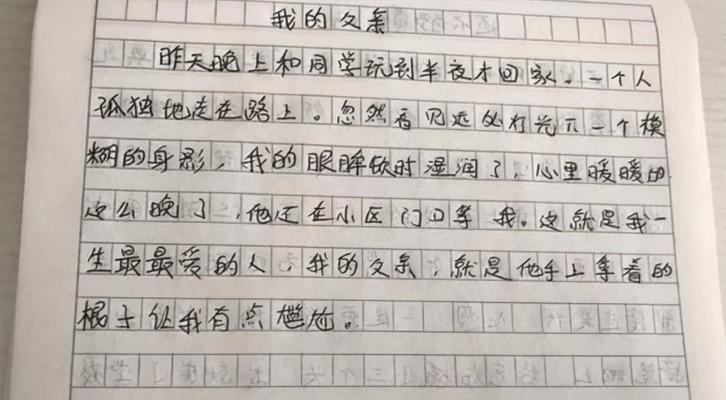 我的父亲
昨天晚上和同学玩到半夜才回家。一个人
孤独地走在路上。忽然看见远处灯光下一个模
糊的身影，我的眼眸顿时湿润了，心里暖暖的
这么晚了，他还在小区门口等我。这就是我一
生最最爱的人，我的父亲，就是他手上拿着的
棍子让我有点尴尬。